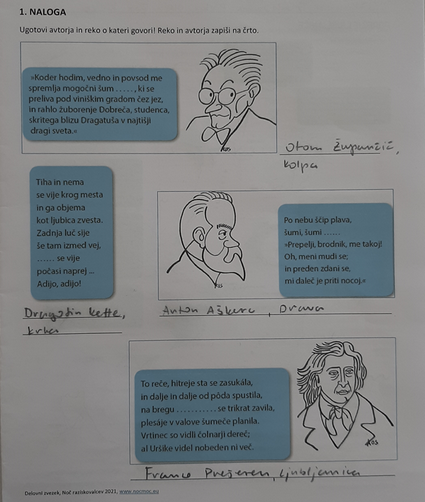 1. NALOGA
Ugotovi avtorja in reko o kateri govori! Reko in avtorja zapiši na črto.
»Koder hodim, vedno in povsod me
spremlja mogočni šum ....., ki se
preliva pod viniškim gradom čez jez,
in rahlo žuborenje Dobreča, studenca,
skritega blizu Dragatuša v najtišji
dragi sveta.«
Oton Župančič,
kolpa
Tiha in nema
se vije krog mesta
in ga objema
kot ljubica zvesta.
Zadnja luč sije
še tam izmed vej,
...... se vije
počasi naprej ...
Adijo, adijo!
Dragotin Kette,
krka
Po nebu ščip plava,
šumi, šumi ......
»Prepelji, brodnik, me takoj!
Oh, meni mudi se;
in preden zdani se,
mi daleč je priti nocoj.«
Anton Aškerc, Drava
To reče, hitreje sta se zasukala,
in dalje in dalje od pôda spustila,
na bregu ........... se trikrat zavila,
plesaje v valove šumeče planila.
Vrtinec so vidli čolnarji dereč;
al Uršike videl nobeden ni več.
France Prešeren, Ljubljanica
Delovni zvezek, Noč raziskovalcev 2021, www.nocmoc.eu